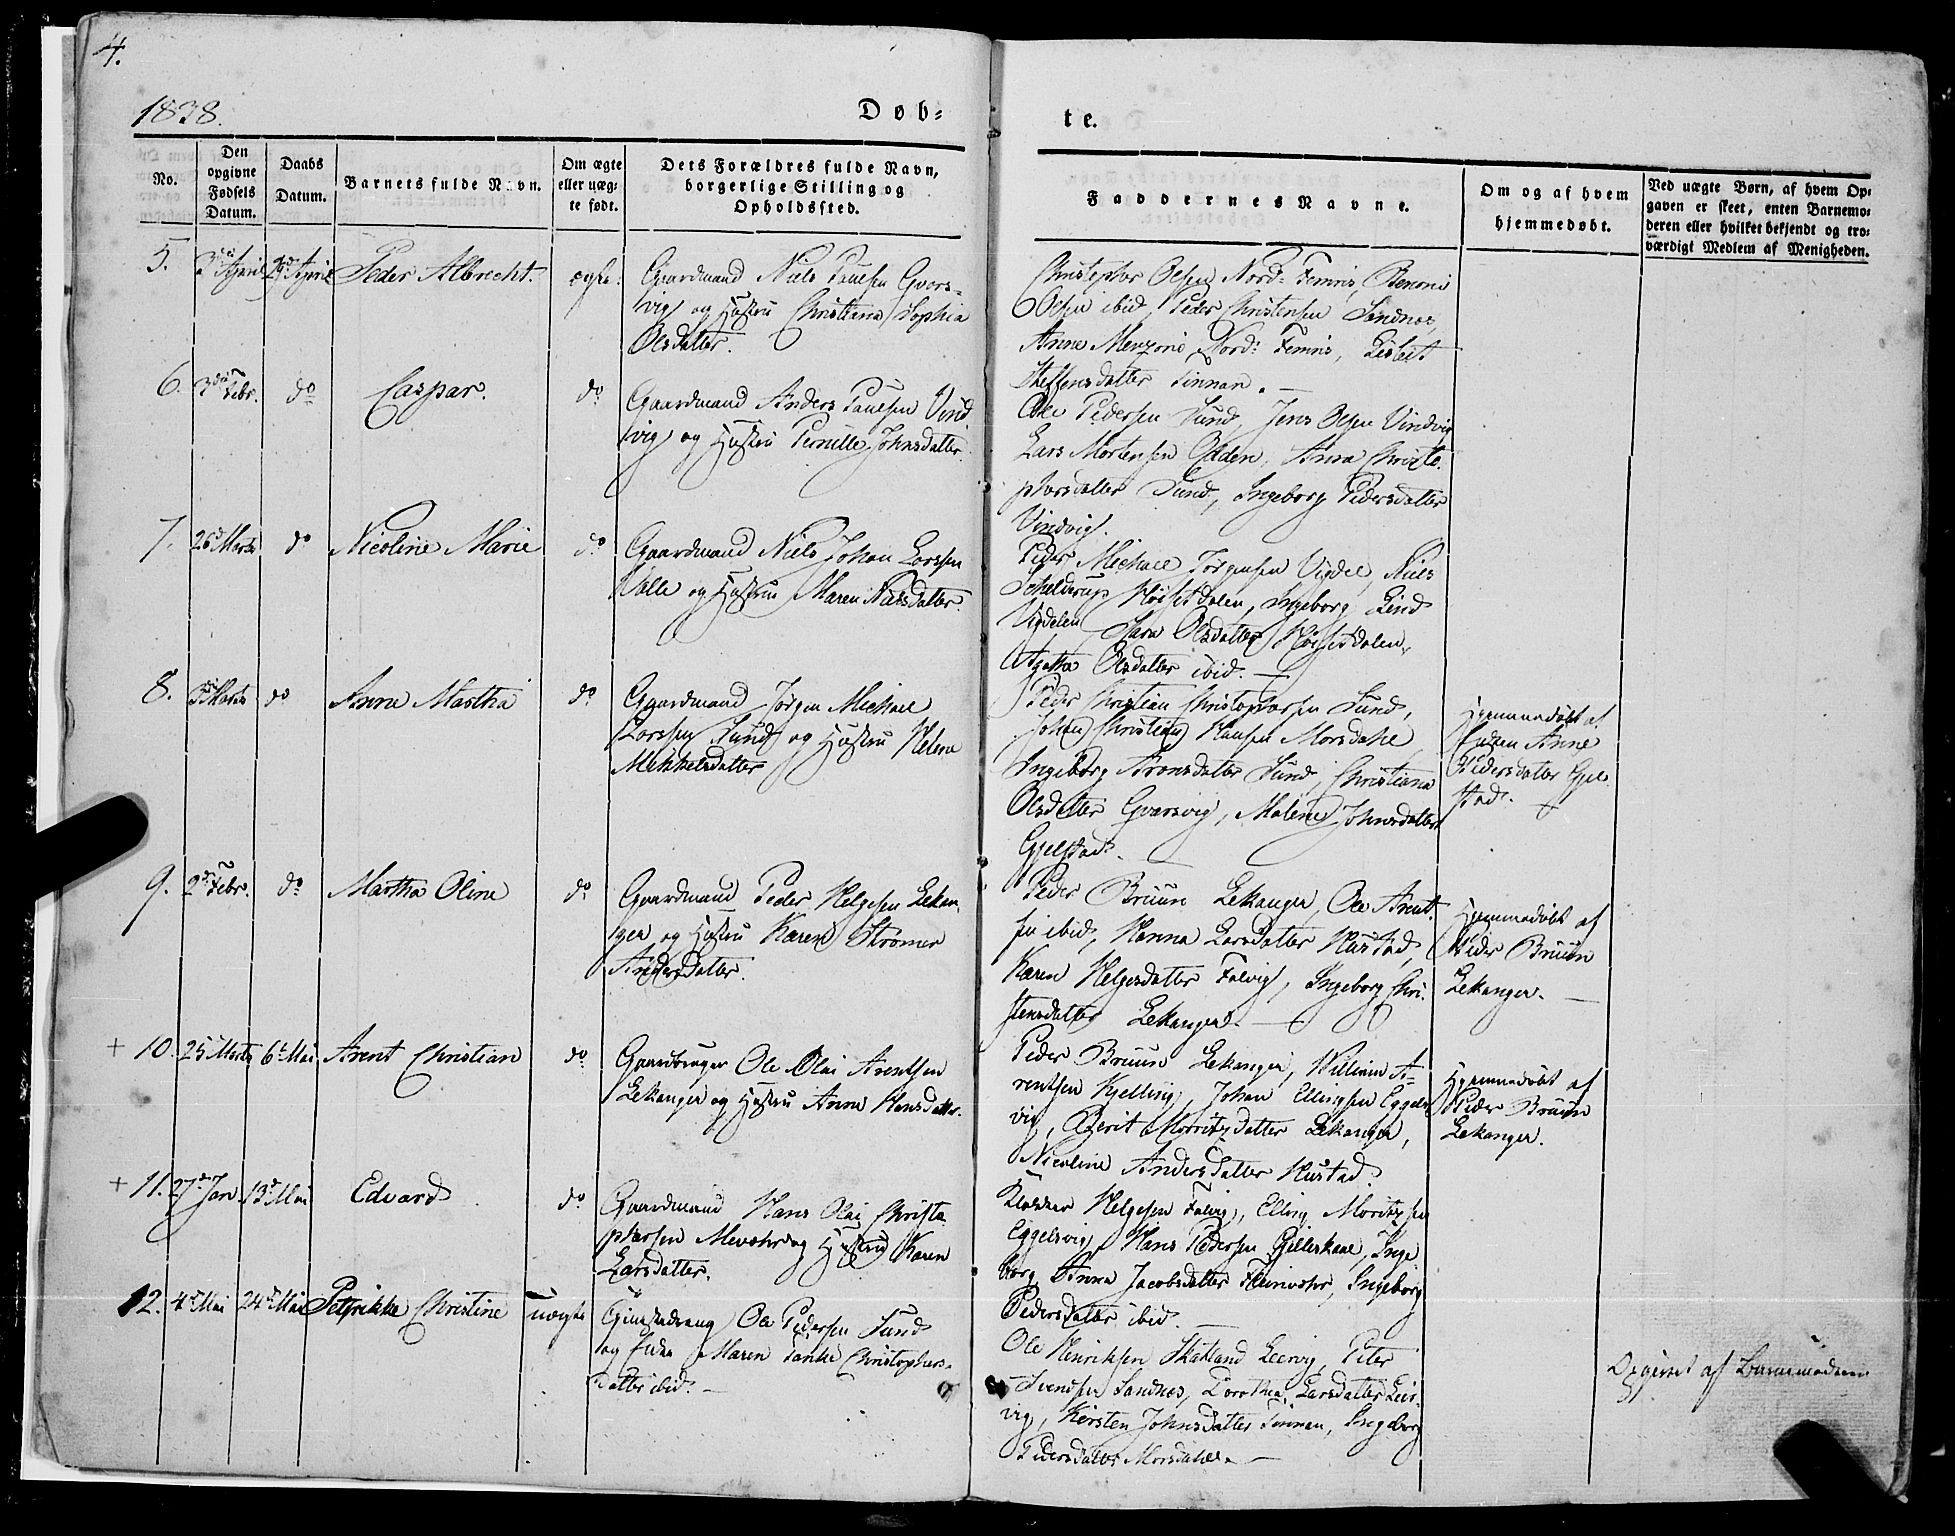 4.
1838.
Døb-
te.
No.
Den opgivne Fødsels Datum.
Daabs Datum.
Barnets fulde Navn.
Om ægte eller uæg-
te født.
Dets Forældres fulde Navn,
borgerlige Stilling og
Opholdssted.
Faddernes Navne.
Om og af hvem
hjemmedøbt.
Ved uægte Børn, af hvem Op-
gaven er skeet, enten Barnemo-
deren eller hvilket bekjendt og tro-
værdigt Medlem af Menigheden.
5. April April Peder Albrecht. ægte.
Gaardmand Niels Paulsen Gvars-
vig og Hustru Christiana Sophia
Olsdatter.
Christopher Olsen Nord- Femris, Benoni
Olsen ibid, Peder Christensen Sandnes,
Anne Menzoni Nord- Femris, Lisbet
Steffensdatter Finnan.
6. 3die Febr. do Caspar. do
Gaardmand Anders Paulsen Vind
vig og Hustru Pernille Johnsdatter.
Ole Pedersen Sund, Jens Olsen Vindvig
Lars Mortensen Odden, Anna Christo-
phersdatter Sund, Ingeborg Pedersdatter
Vindvig.
7. 26d Marts do Nicoline Marie do
Gaardmand Niels Johan Larssen
Valle og Hustru Maren Nielsdatter.
Peder Michael Jørgensen Vigdel, Niels
Schelderup Høisetdalen, Ingeborg Lind
Vigdelen, Sara Olsdatter Høisetdalen,
Agatha Olsdatter ibid. —
8. Marts do Anne Martha do
Gaardmand Jørgen Michael
Larssen Sund og Hustru Helena
Mikkelsdatter
Peder Christian Christophersen Sund,
Johan Christian Hansen Morsdahl
Ingeborg Aronsdatter Sund, Christiana
Olsdatter Gvarsvig, Malene Johnsdatter
Gjelstad.
Hjemmedøbt af
Enken Anne
Pedersdatter Gjel
stad.
9. 2d Febr. do Martha Oline do
Gaardmand Peder Helgesen Lekan-
ger og Hustru Karen Strømer
Andersdatter.
Peder Bruun Lekanger, Ole Arent-
sen ibid, Hanna Larsdatter Hustad,
Karen Helgesdatter Falvig, Ingeborg Chri-
stensdatter Lekanger. —
Hjemmedøbt af
Peder Bruun
Lekanger. —
+ 10. 25 Marts 6t Mai Arent Christian do
Gaardbruger Ole Olai Arentsen
Lekanger og Hustru Anne Hansdatter.
Peder Bruun Lekanger, Willium A-
rentsen Kjelling, Johan Ellingsen Eggels
vig, Berit Moritzdatter Lekanger,
Nicoline Andersdatter Hustad.
Hjemmedøbt af
Peder Bruun
Lekanger.
+ 11. 27d Jan. 13d Mai Edvard do
Gaardmand Hans Olai Christo-
phersen Mevær og Hustru Karen
Larsdatter.
Helgesen Falvig, Elling Moritzsen
Eggelsvig, Hans Pedersen Gilleskaal, Inge
borg Anna Jacobsdatter Fleinvær, Ingeborg
Pedersdatter ibid. —
12. 4d Mai 24d Mai Petrikke Christine uægte
Ole Pedersen Sund
og Maren Tanke Christophers-
datter ibid. —
Ole Henriksen Skatland Leervig, Peter
Svendsen Sandnes, Dorothea Larsdatter Leer-
vig, Kirsten Johnsdatter Finnan, Ingeborg
Pedersdatter Morsdahl. —
Opgivet af Barnemoderen